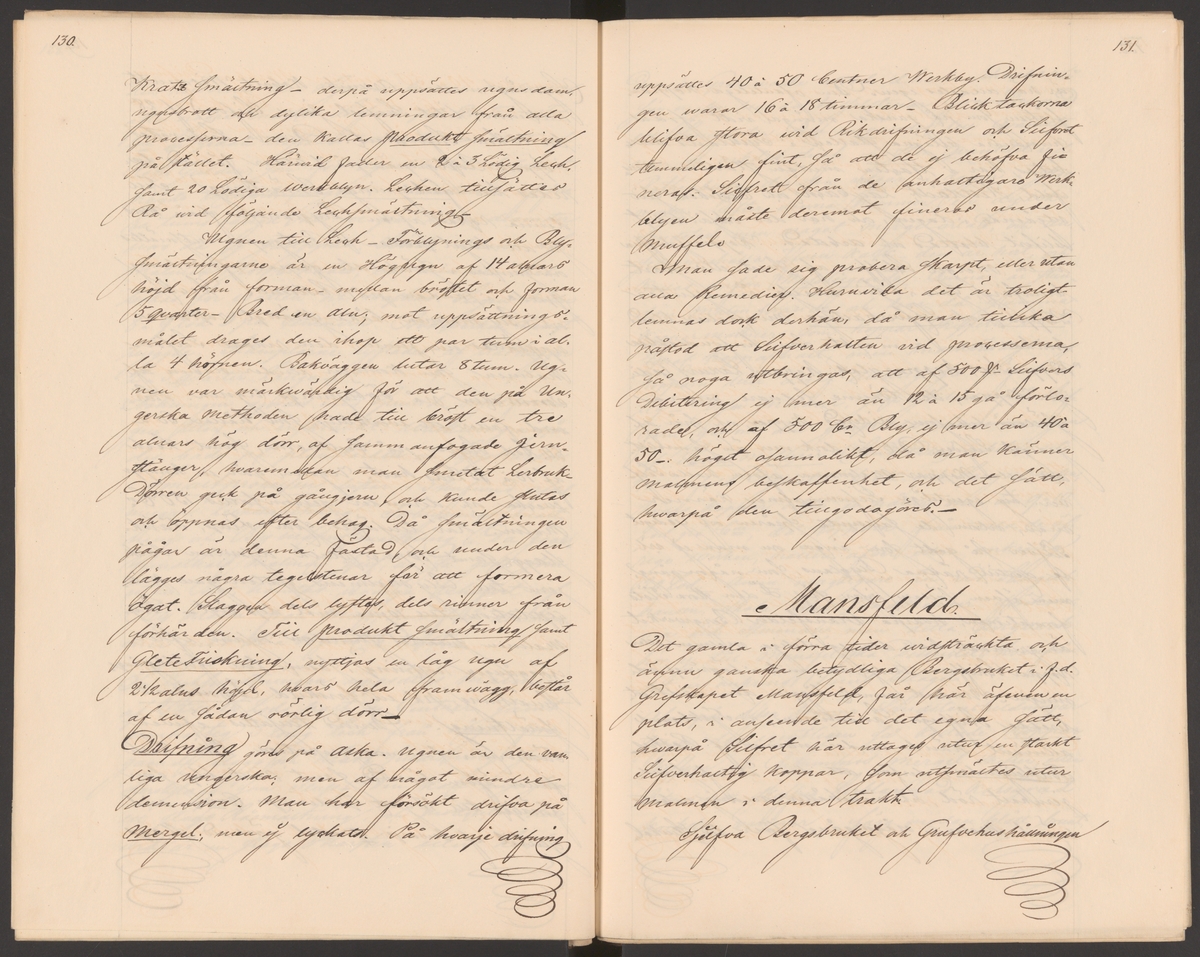 130.
Kratz smältning – derpå uppsättes ugnsdam,
ugnsbrott och dylika lemningar från alla
processerna – den kallas Produkt smältning
på stället. Härvid faller en 2 à 3 Lödig Lech,
samt 20 Lödiga werkblyn. Lechen tillsättes
Rå vid följande Lechsmältning –
Ugnen till Lech – Förblynings och Bly-
smältningarne är en Högugn af 14 alnars
höjd från forman – mellan bröstet och forman
5 qvarter – Bred en aln; mot uppsättnings-
målet drages den ihop ett par tum i al-
la 4 hörnen. Bakväggen lutar 8 tum. Ug-
nen var märkwärdig för att den på Un-
gerska Methoden hade till bröst en tre
alnars hög dörr, af sammanfogade jern-
stänger, hvaremellan man smetat Lerbruk –
Dörren gick på gångjern och kunde slutas
och öppnas efter behag. Då smältningen
pågår är denna fästad, och under den
lägges några tegelstenar för att formera
ögat. Slaggen dels lyftes, dels rinner från
förhärden. Till produkt smältning samt
Glete Friskning, nyttjas en låg ugn af
2 1/2 alns höjd, hvars hela framwägg, består
af en sådan rörlig dörr –
Drifning göres på aska. Ugnen är den van-
liga ungerska, men af något mindre
demension. Man har försökt drifva på
Mergel, men ej lyckats. På hvarje drifning
131.
uppsättes 40 à 50 Centner Werkbly. Drifnin-
gen warar 16 à 18 timmar – Blick tackorna
blifva stora wid Rikdrifningen och Silfret
temmeligen fint, så att de ej behöfva fi-
neras. Silfret från de anhaltigare Werk-
blyen måste deremot fineras under
Muffel.
Man sade sig probera skarpt, eller utan
alla Remedier. Huruvida det är troligt
lemnas dock derhän, då man tillika
påstod att Silfverhalten vid processerna,
så noga utbringas, att af 500 Silfvers
Debitering ej mer än 12 à 15 gå förlo-
rade, och af 500 Cr Bly, ej mer än 40 à
50 –. högst osannolikt, då man känner
malmens beskaffenhet, och det sätt,
hwarpå den tillgodogöres. –
Mansfeld.
Det gamla i förra tider widsträckta och
ännu ganska betydliga Bergsbruket i f.d.
Grefskapet Mansfeld, får här äfven en
plats, i anseende till det egna sätt,
hwarpå Silfret här uttages utur en starkt
Silfverhaltig Koppar, som utsmältes utur
malmen i denna trakt.
Sjelfva Bergsbruket och Grufvehushållningen